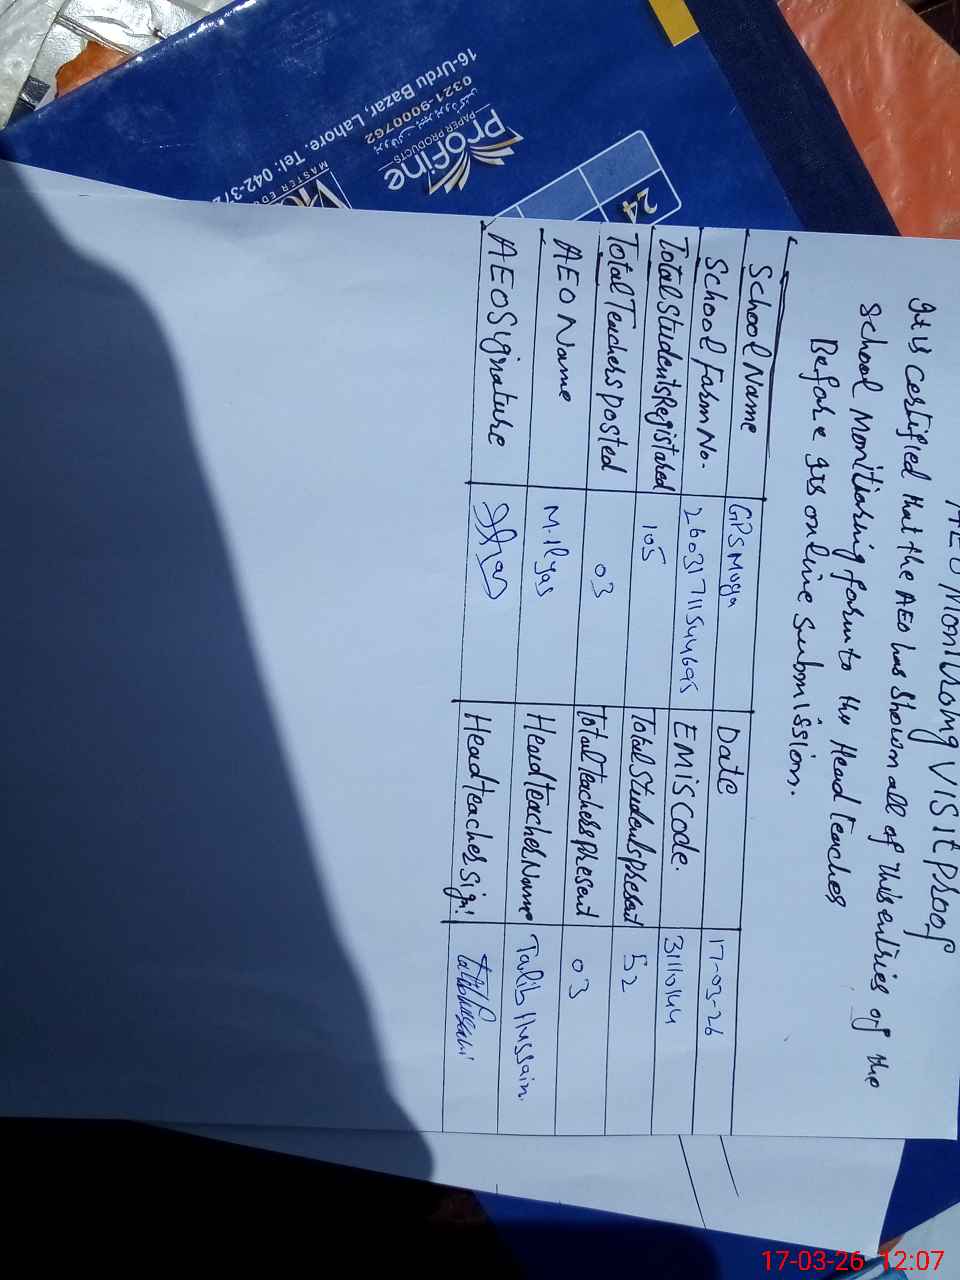 AEO Monitrong Visit Proof
It is certified that the AEO has shown all of this entries of the
School Monitiaring farm to the Head Teaches
Before its online submission.
School Name GPS Moga Date 17-03-26
School Farm No. 26031711544695 EMIS CODE. 31110144
Total Students Registared 105 Total Students Present 52
Total Teachers posted 03 Total Teachers present 03
AEO Name M. Ilyas Head Teacher Name Talib Hussain.
AEO Signature Head teacher Sign!
PROFINE
PAPER PRODUCTS
0321-9000762
16-Urdu Bazar, Lahore. Tel: 042-372
MASTER
24
17-03-26 12:07